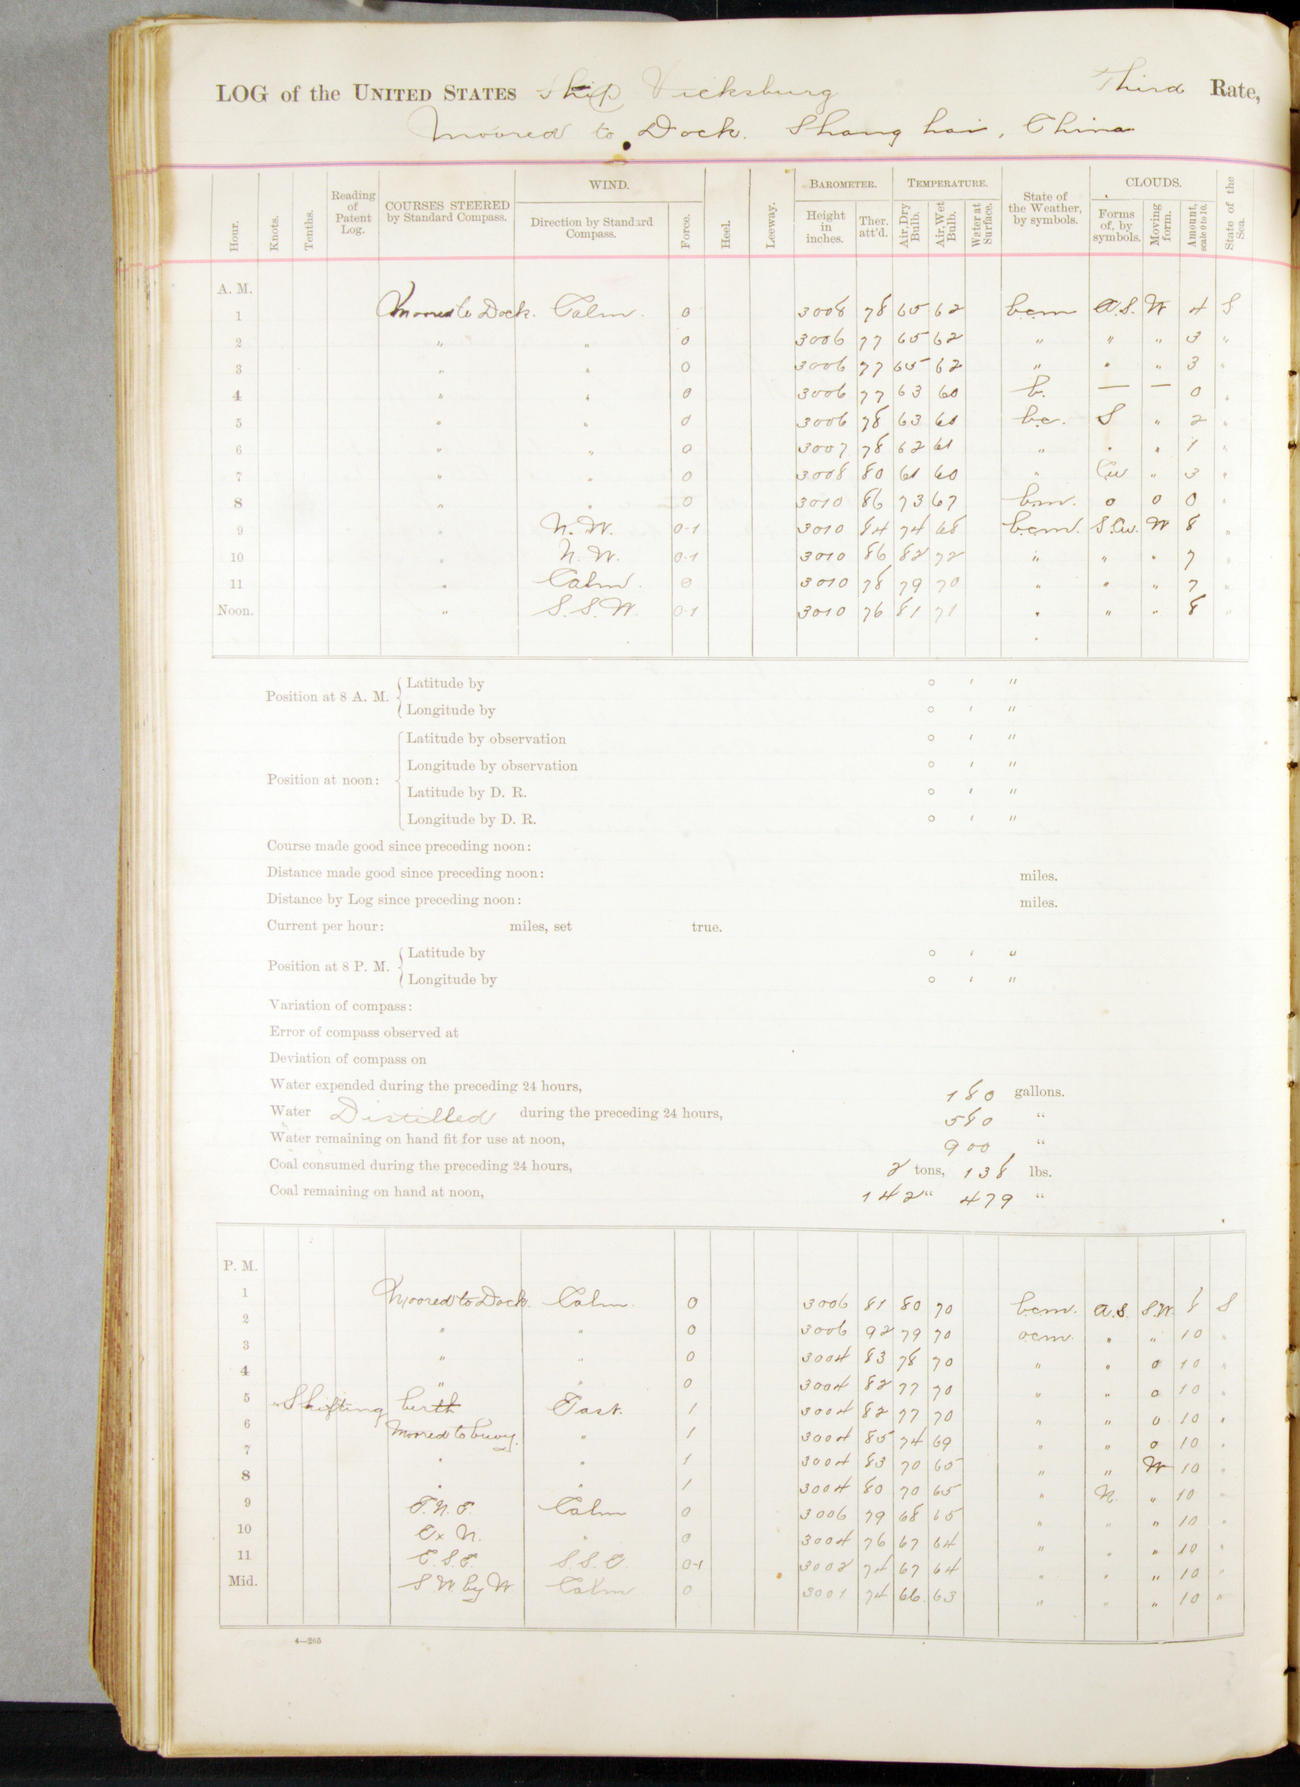 LOG of the UNITED STATES Ship Vicksburg Third Rate,
Moored to Dock. Shanghai, China
Hour. Knots. Tenths. Reading of Patent Log. COURSES STEERED by Standard Compass. WIND. Direction by Standard Compass. Force. Heel. Leeway. BAROMETER. Height in inches. Ther. att'd. TEMPERATURE. Air, Dry Bulb. Air, Wet Bulb. Water at Surface. State of the Weather, by symbols. CLOUDS. Forms of, by symbols. Moving form. Amount, scale 0 to 10. State of the Sea.
A. M.
1 Moored to Dock. Calm. 0 3008 78 65 62 bcm A.S. W 4 S
2 " " 0 3006 77 65 62 " " " 3 "
3 " " 0 3006 77 65 62 " " " 3 "
4 " " 0 3006 77 63 60 b. — — 0 "
5 " " 0 3006 78 63 61 bc. S " 2 "
6 " " 0 3007 78 62 61 " " " 1 "
7 " " 0 3008 80 61 60 " Cu " 3 "
8 " " 0 3010 86 73 67 bm. 0 0 0 "
9 " N.W. 0-1 3010 84 74 68 bcm. S.Cu. W 8 "
10 " N.W. 0-1 3010 86 82 72 " " " 7 "
11 " Calm. 0 3010 78 79 70 " " " 7 "
Noon. " S.S.W. 0-1 3010 76 81 71 " " " 8 "
Position at 8 A. M. Latitude by ° ' "
Longitude by ° ' "
Position at noon: Latitude by observation ° ' "
Longitude by observation ° ' "
Latitude by D. R. ° ' "
Longitude by D. R. ° ' "
Course made good since preceding noon:
Distance made good since preceding noon: miles.
Distance by Log since preceding noon: miles.
Current per hour: miles, set true.
Position at 8 P. M. Latitude by ° ' "
Longitude by ° ' "
Variation of compass:
Error of compass observed at
Deviation of compass on
Water expended during the preceding 24 hours, 180 gallons.
Water Distilled during the preceding 24 hours, 580 "
Water remaining on hand fit for use at noon, 900 "
Coal consumed during the preceding 24 hours, 2 tons, 138 lbs.
Coal remaining on hand at noon, 142 " 479 "
P. M.
1 Moored to Dock. Calm. 0 3006 81 80 70 bcm. A.S. S.W. 8 S
2 " " 0 3006 92 79 70 ocm. " " 10 "
3 " " 0 3004 83 78 70 " " 0 10 "
4 " " 0 3004 82 77 70 " " 0 10 "
5 Shifting birth East. 1 3004 82 77 70 " " 0 10 "
6 Moored to buoy. " 1 3004 85 74 69 " " 0 10 "
7 " " 1 3004 83 70 65 " " W 10 "
8 " " 1 3004 80 70 65 " N. " 10 "
9 E.N.E. Calm 0 3006 79 68 65 " " " 10 "
10 E x N. " 0 3004 76 67 64 " " " 10 "
11 E.S.E. S.S.E. 0-1 3002 74 67 64 " " " 10 "
Mid. S W by W Calm 0 3001 74 66 63 " " " 10 "
4—265